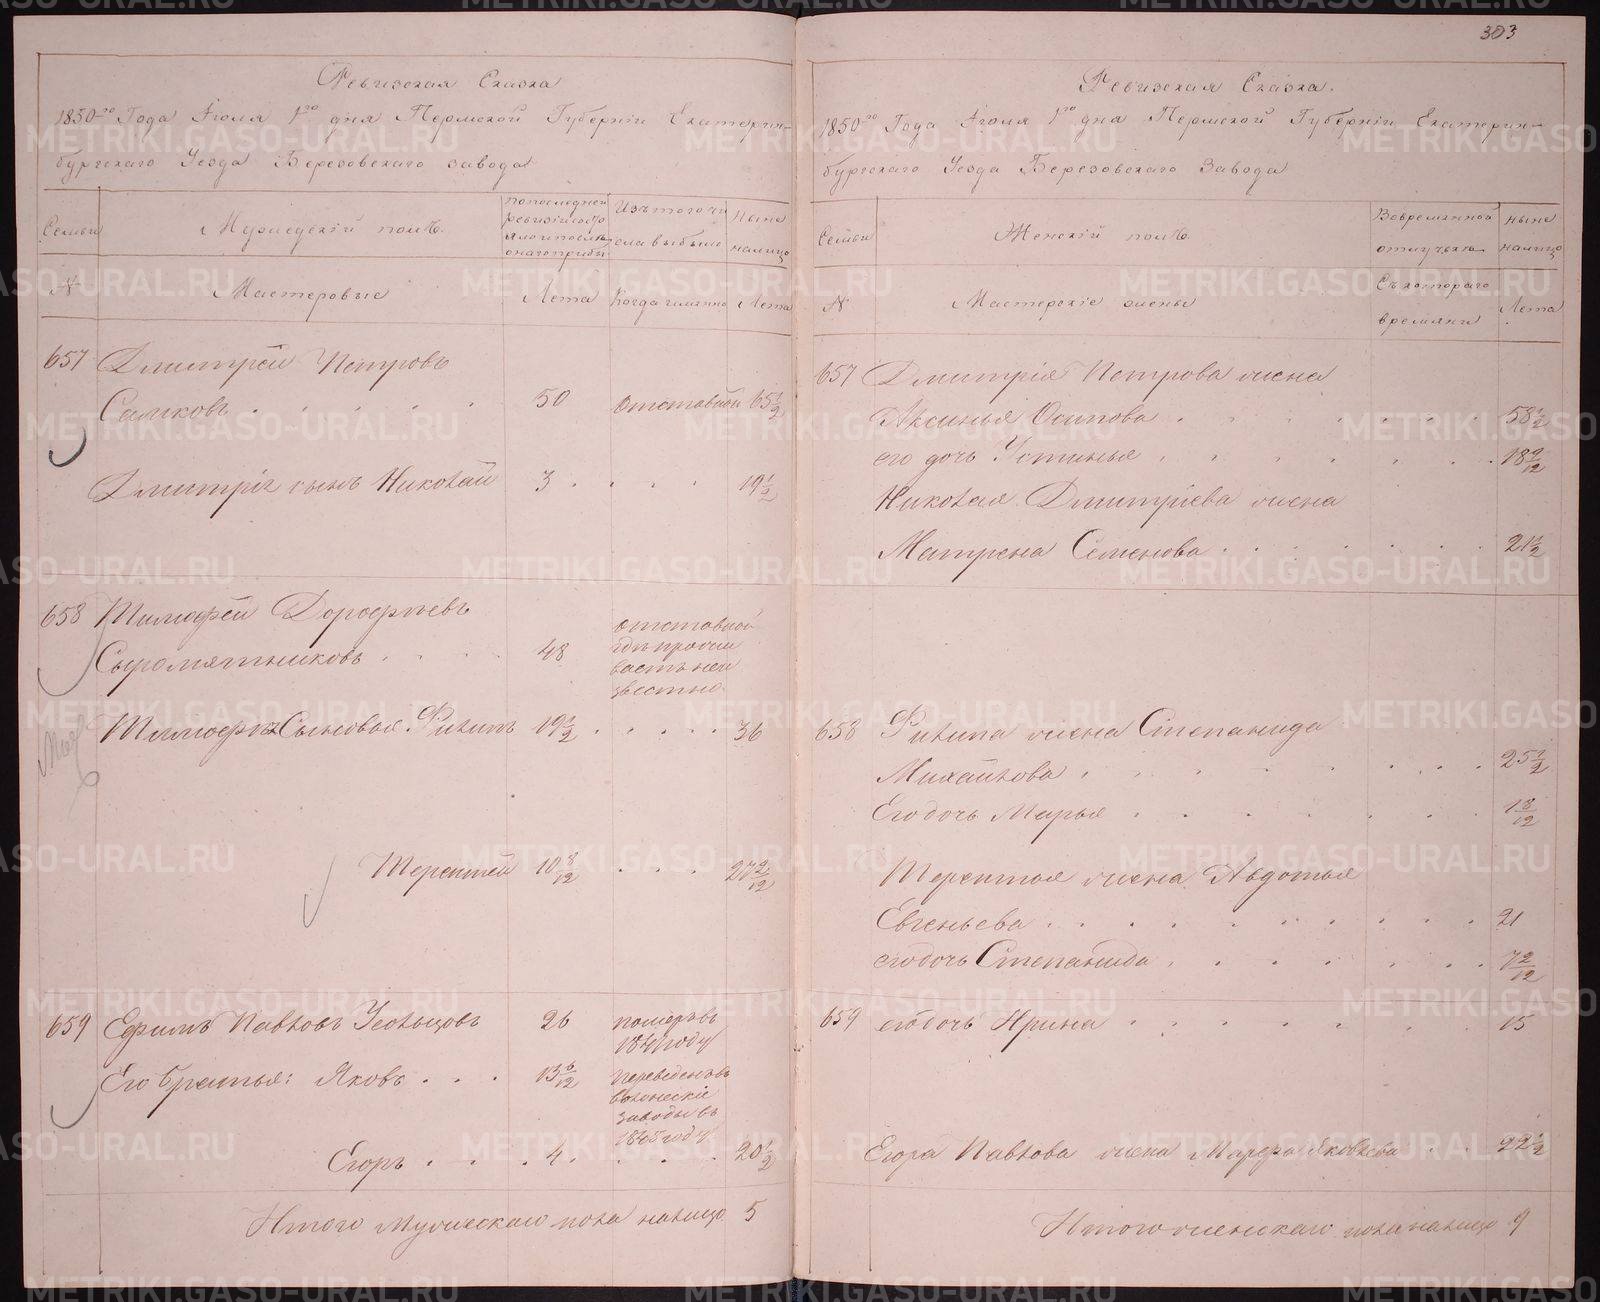 303
Ревизская Сказка
1850го Года Іюля 1го дня Пермской Губерніи Екатерин-
бургскаго Уезда Березовскаго завода
Семьи
Мужедскій полъ.
попоследней
ревизіи
Изътогочи
славыбыло
Ныне
налицо
N
Мастеровые
Лета
Когда имянно
Лета
657 Дмитрей Петровъ
Самковъ . . . . . 50 отставной 65 1/2
Дмитрія сынъ Николай 3 . . . . 19 1/2
658 Тимофей Дорофеевъ
Сыромятниковъ . . . . 48
отставной
гдѣ прожи
ваетъ неи
звестно.
Тимофея Сыновья: Филипъ 19 1/2 . . . . . 36
Терентей 10 8/12 . . . . 27 2/12
659 Ефимъ Павловъ Усольцовъ 26
померъ въ
1841 году
Его братья: Яковъ . . . 13 6/12
переведенъ въ
заводы въ
году
Егоръ . . . . 4 . . . . 20 1/2
Итого Мужескаго пола налицо 5
Ревизская Сказка.
1850го Года Іюля 1го дня Пермской Губерніи Екатерин-
бургскаго Уезда Березовскаго Завода
Семьи
Женскій полъ.
Вовремянной
отлучкѣ
ныне
налицо
N
Мастерскіе жены
Съкотораго
времяни
Лета
657 Дмитрія Петрова жена
Аксинья Осипова . . . . . . 58 1/2
его дочь Устинья . . . . . . 18 9/12
Николая Дмитріева жена
Матрена Семенова . . . . . . 21 1/2
658 Филипа жена Степанида
Михайлова . . . . . . 25 1/2
Егодочь Марья . . . . . . 1 8/12
Терентья жена Авдотья
Евгеньева . . . . . . 21
егодочь Степанида . . . . . . 7 2/12
659 егодочь Ирина . . . . . . 15
Егора Павлова жена Марфа Яковлева . . 22 1/2
Итого женскаго пола налицо 9
METRIKI.GASO-URAL.RU